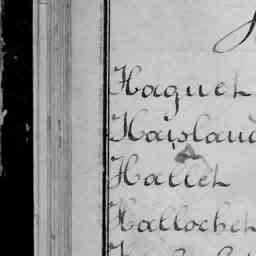 Haquet
Haisland
Hallet
Hallochet